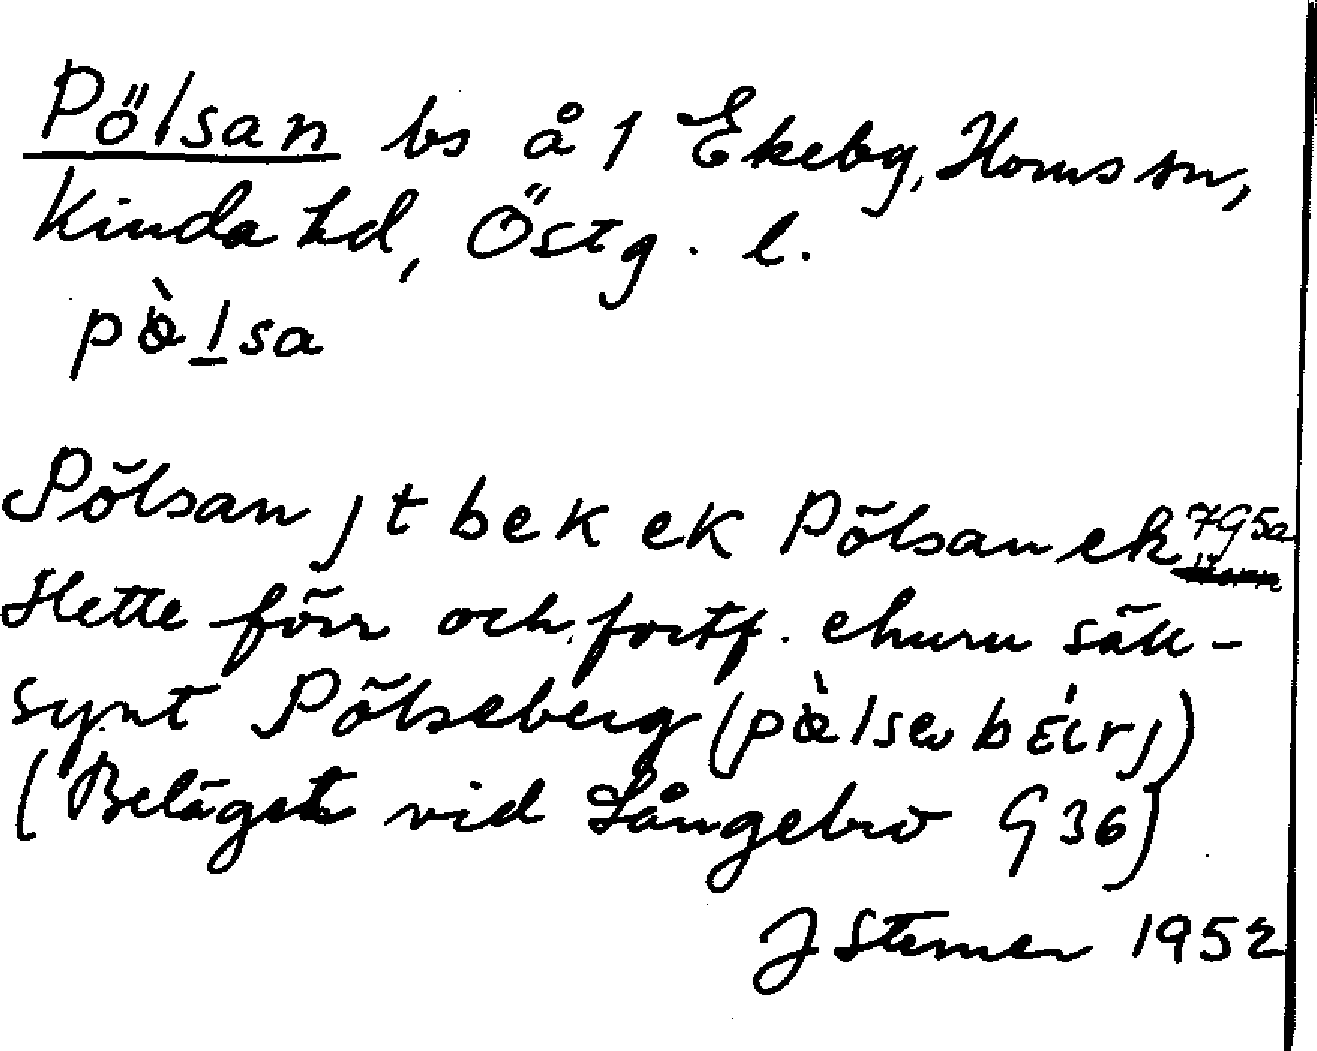 Pölsan bs å 1 Ekeby, Horns sn,
Kinda hd, Östg. l.
pö̀lsa
Pölsan jt bek ek Pölsan ek 795a
Hette förr och fortf. ehuru säll-
synt Pölseberg (
(Beläget vid Långebro G36)
J Sterner 1952